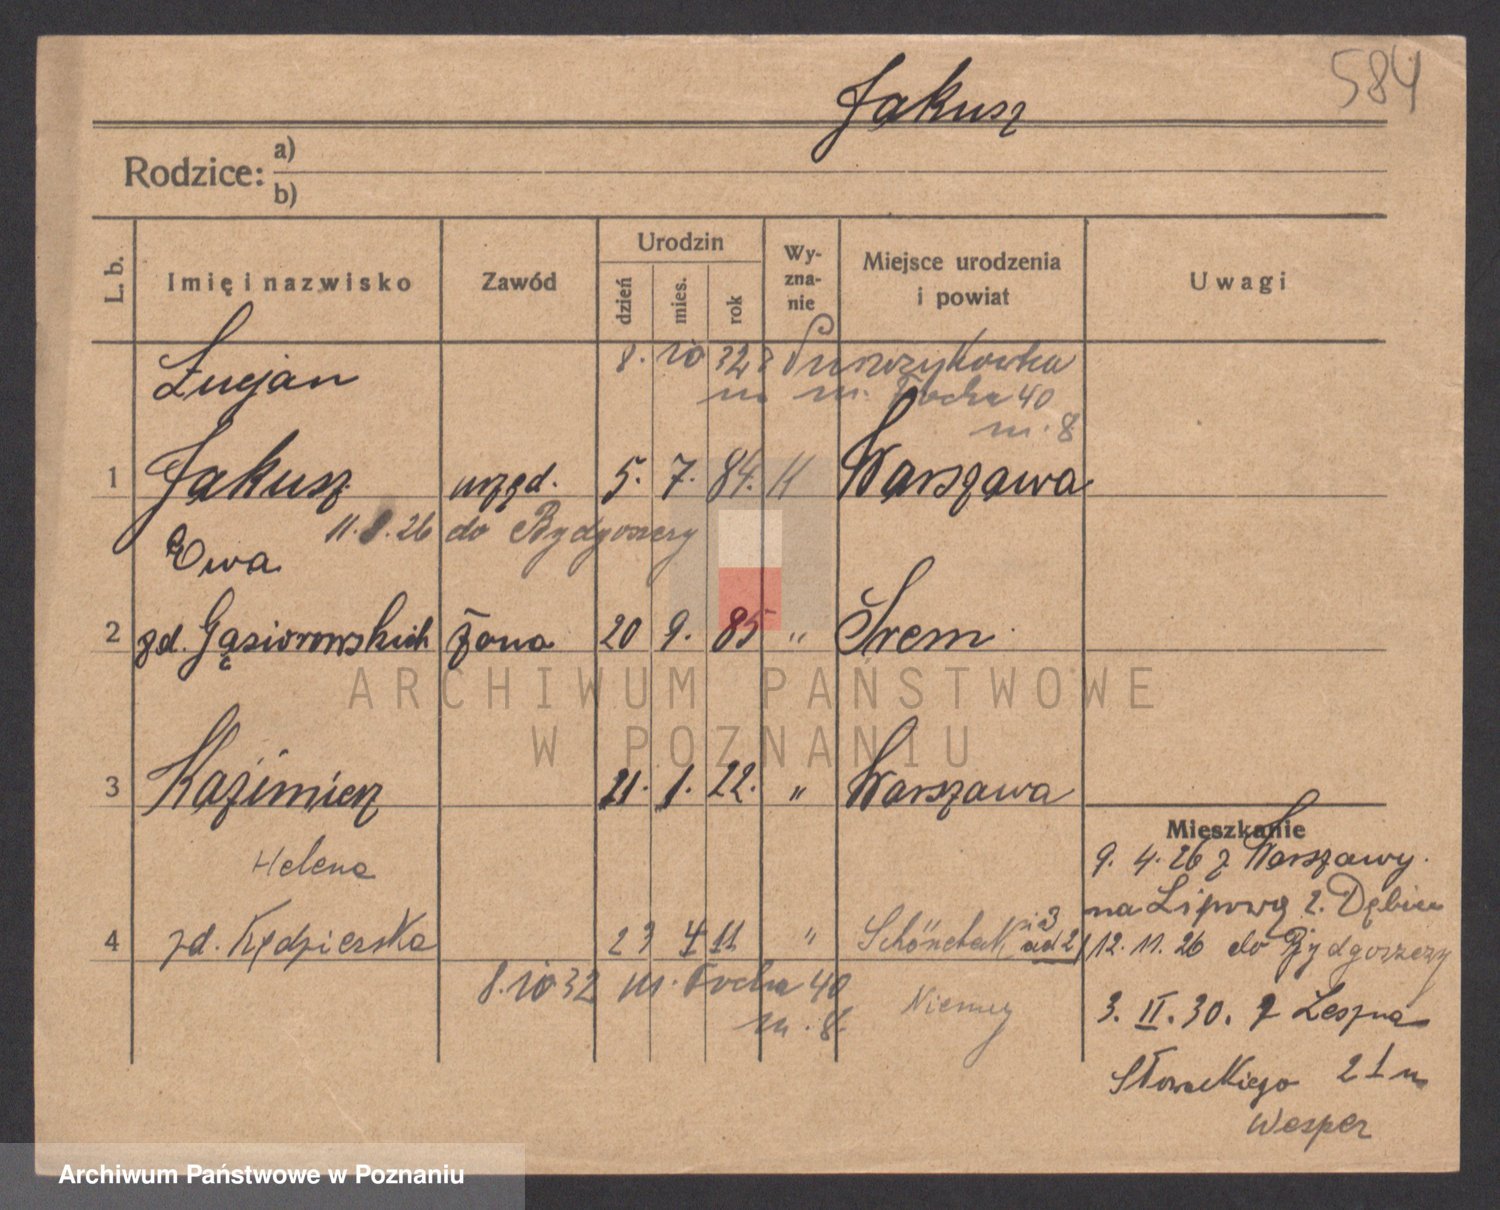 584
Jakusz
Rodzice: a)
b)
L. b.
Imię i nazwisko
Zawód
Urodzin
dzień
mies.
rok
Wy-
zna-
nie
Miejsce urodzenia
i powiat
Uwagi
Lucjan
8. 10 32
m. Focha 40
m. 8
1 Jakusz urzęd. 5. 7. 84. Warszawa
11. 8. 26 do Bydgoszczy
Ewa
2 zd. Gąsiorowskich żona 20 9. 85 " Śrem
ARCHIWUM PAŃSTWOWE
W POZNANIU
3 Kazimierz 21. 1. 22. " Warszawa
Mieszkanie
9. 4. 26 z Warszawy
na Lipową 2. Dębiec
12. 11. 26 do Bydgoszczy
3. II. 30. z Leszna
Słowackiego 21 u
Wesper
Helena
4 zd. Kędzierska 23 4 11 "
Niemcy
8. 10 32 m. Focha 40
m. 8
Archiwum Państwowe w Poznaniu